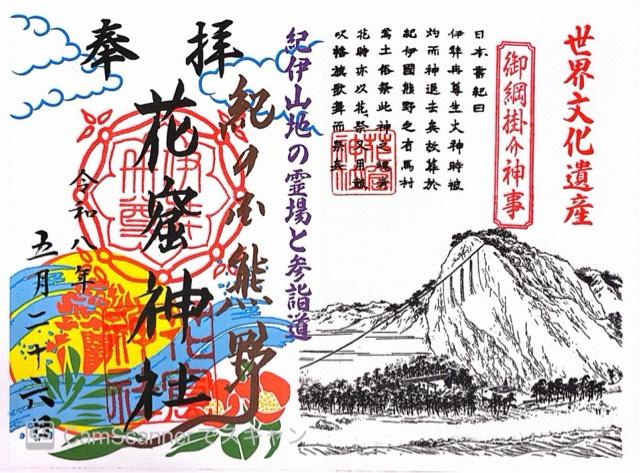 世界文化遺産
御綱掛ヶ神事
日本書紀曰
伊弉冉尊生火神時被
灼而神退去矣故葬於
紀伊國熊野之有馬村
焉土俗祭此神之魂者
花時亦以花祭又用鼓
吹幡旗歌舞而祭矣
花窟神社
紀伊山地の霊場と参詣道
拝
奉
紀の国熊野
花窟神社
令和八年
五月二十六日
花窟神社
CamScannerでスキャン